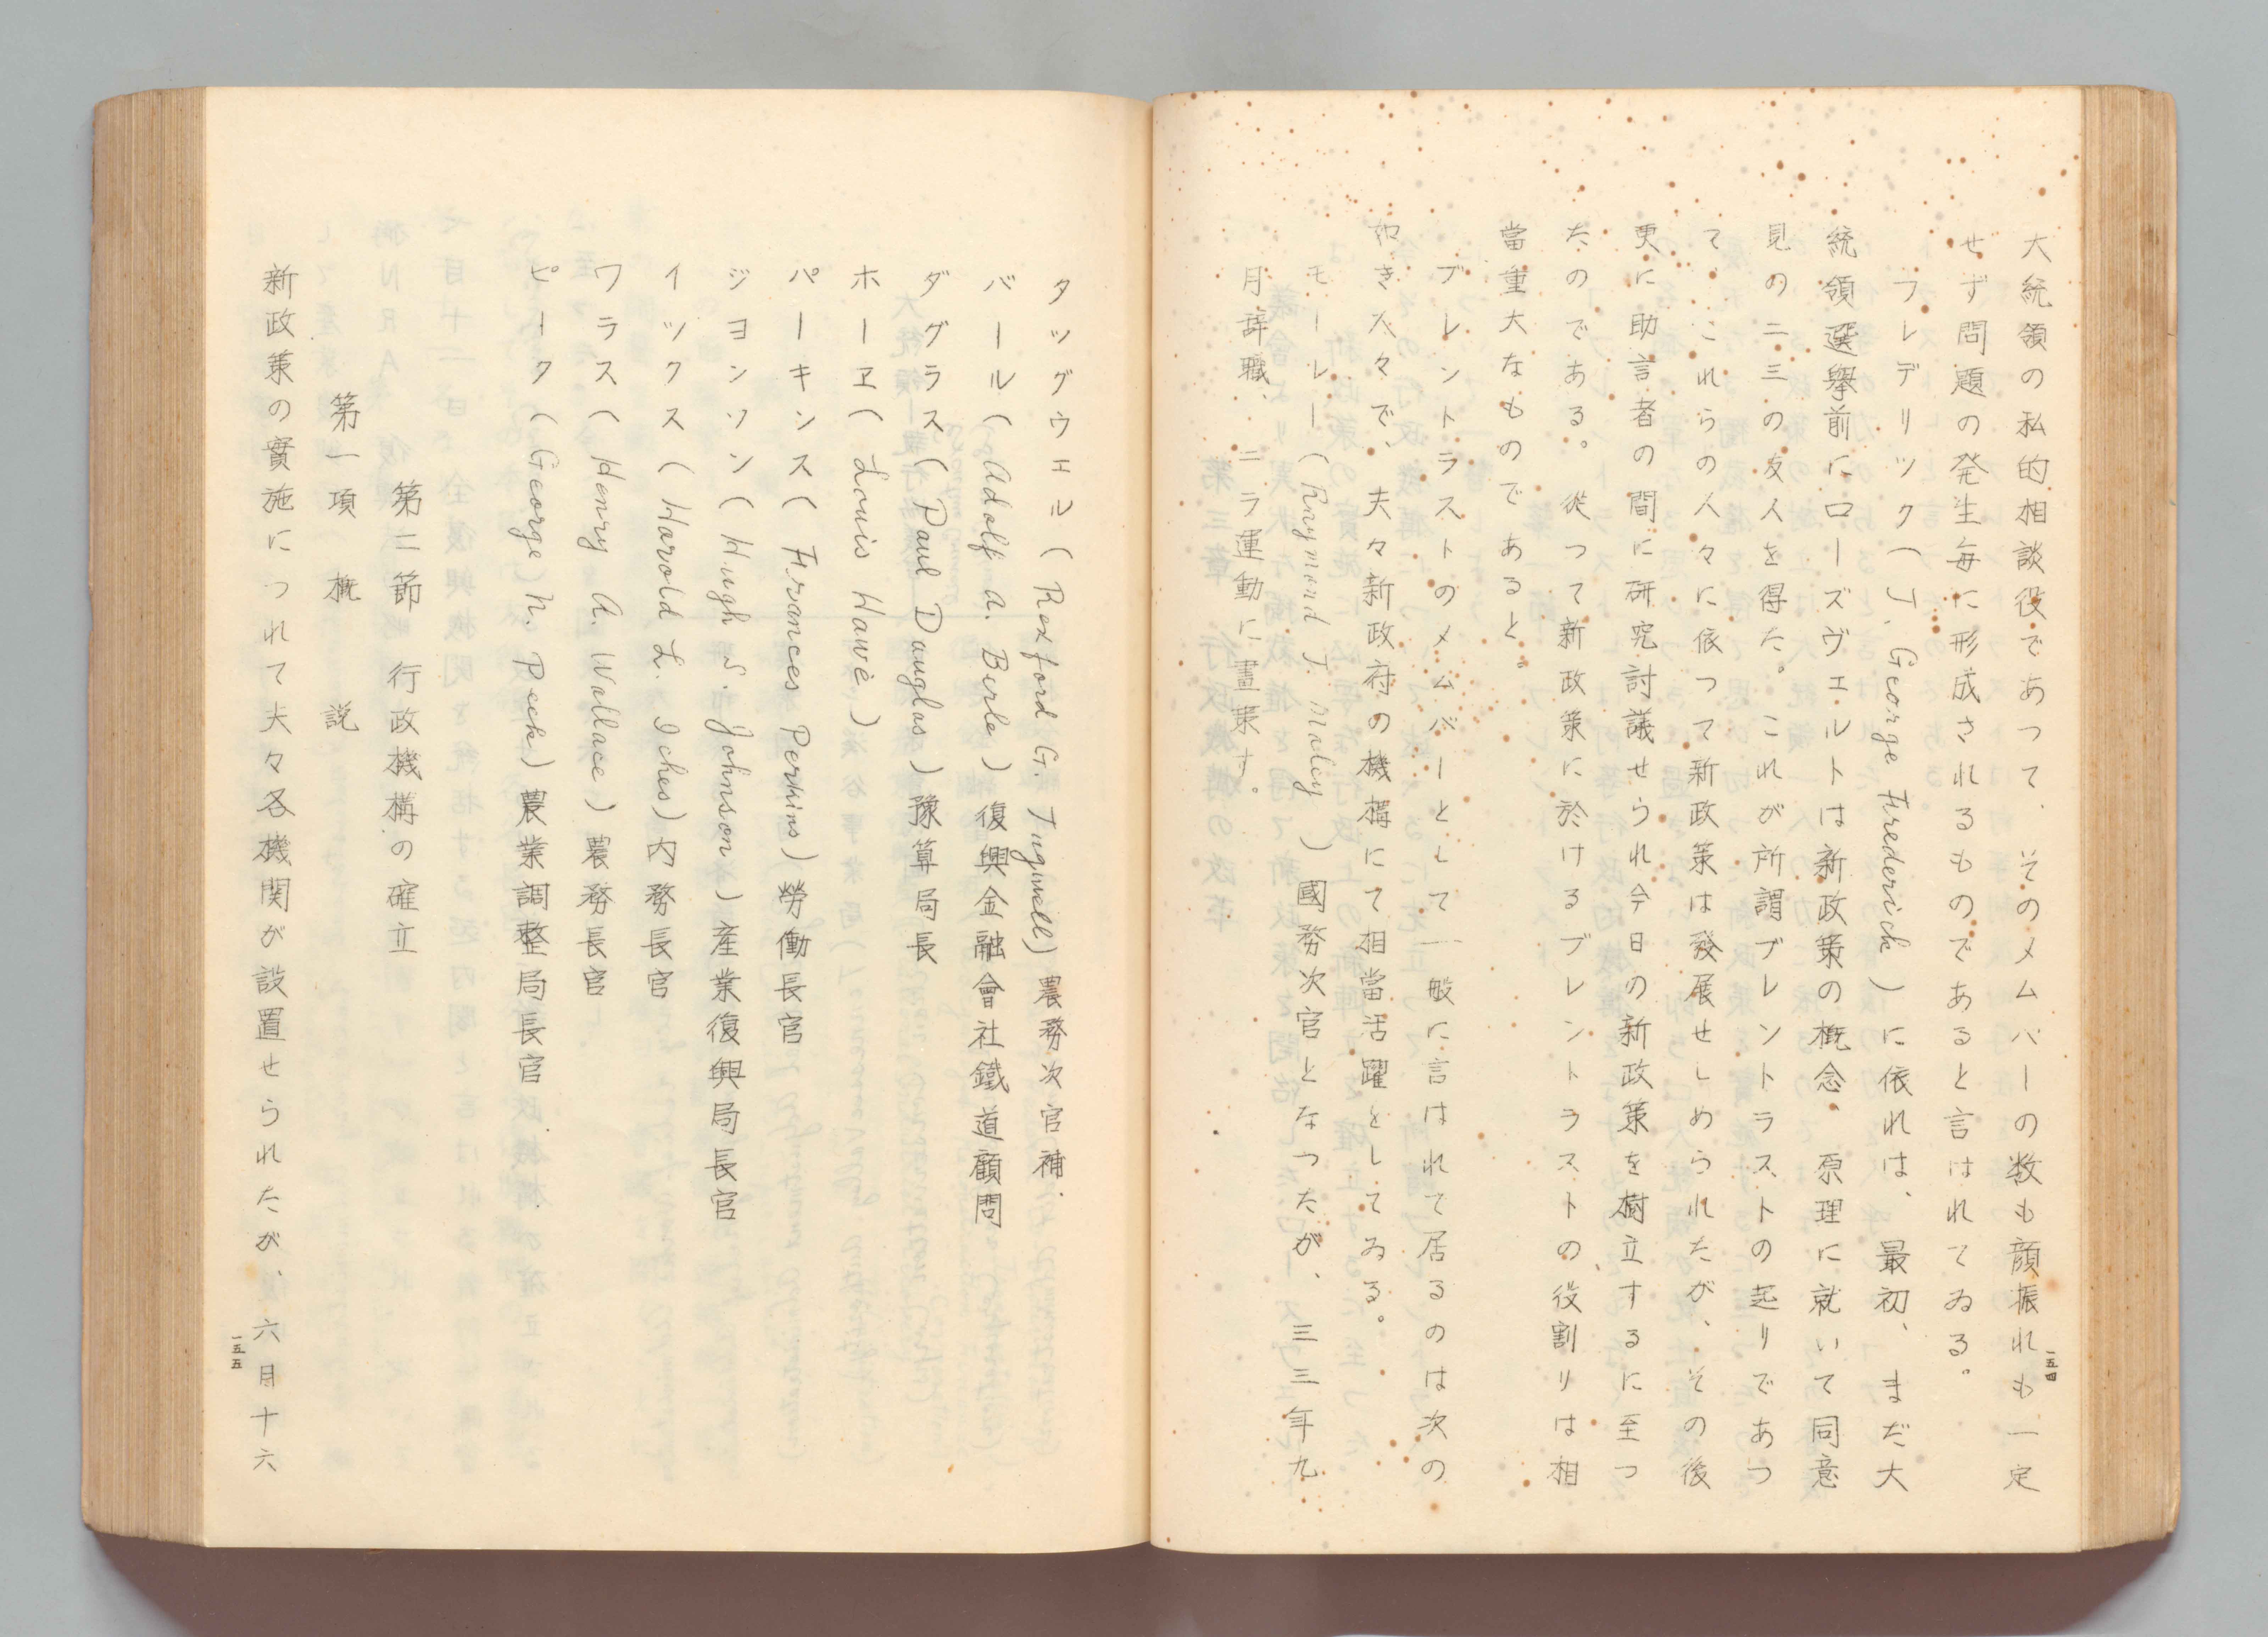 大統領の私的相談役であつて、そのメムバーの数も顔振れも一定
せず問題の発生毎に形成されるものであると言はれてゐる。
フレデリック(J. George Frederick)に依れは、最初、まだ大
統領選擧前にローズヴェルトは新政策の概念、原理に就いて同意
見の二三の友人を得た。これが所謂ブレントラストの起りであつ
て、これらの人々に依つて新政策は發展せしめられたが、その後
更に助言者の間に研究討議せられ今日の新政策を樹立するに至つ
たのである。従つて新政策に於けるブレントラストの役割りは相
當重大なものであると。
ブレントラストのメムバーとして一般に言はれて居るのは次の
如き人々で、夫々新政府の機構にて相當活躍をしてゐる。
モーレー(Raymond J. Moley)國務次官となつたが、三三年九
月辞職、ニラ運動に畫策す。
一五四
タッグウエル(Rexford G. Tugwell)農務次官補.
バール(Adolf A. Birle)復興金融會社鐵道顧問
ダグラス(Paul Dauglas)豫算局長
ホーエ(Louis Hawe)
パーキンス(Frances Perkins)勞働長官
ジヨンソン(Hugh S. Johnson)産業復興局長官
イックス(Harold L. Iches)内務長官
ワラス(Henry A. Wallace)農務長官
ピーク(George N. Peek)農業調整局長官
第二節 行政機構の確立
第一項 概說
新政策の實施につれて夫々各機関が設置せられたが、六月十六
一五五